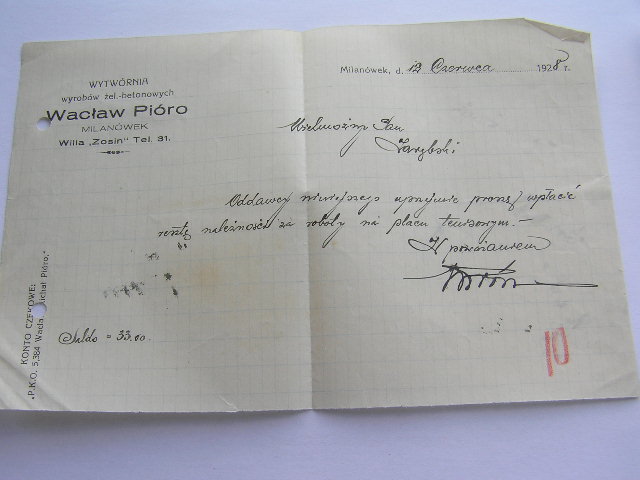 WYTWÓRNIA
wyrobów żel.-betonowych
Wacław Pióro
MILANÓWEK
Willa „Zosin" Tel. 31.
Milanówek, d. 12 Czerwca 1928 r.
Wielmożny Pan
Zarębski
Oddawcy niniejszego uprzejmie proszę wpłacić
resztę należności za roboty na placu tenisowym.—
Z poważaniem
Saldo = 33.00
KONTO CZEKOWE:
„P.K.O. 5,384 Wacła. Michał Pióro."
10